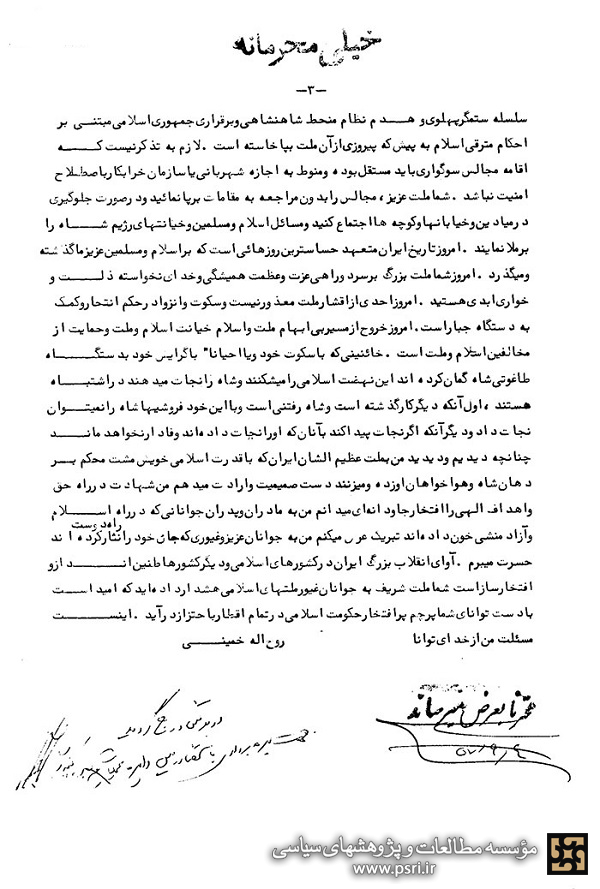 خیلی محرمانه
—۳—
سلسله ستمگر پهلوی و هدم نظام منحط شاهنشاهی و برقراری جمهوری اسلامی مبتنی بر
احکام مترقی اسلام به پیش که پیروزی از آن ملت بپا خاسته است . لازم به تذکر نیست که
اقامه مجالس سوگواری باید مستقل بوده و منوط به اجازه شهربانی یا سازمان خرابکار باصطلاح
امنیت نباشد . شما ملت عزیز ، مجالس را بدون مراجعه به مقامات برپا نمائید و در صورت جلوگیری
در میادین و خیابانها و کوچه ها اجتماع کنید و مسائل اسلام و مسلمین و خیانتهای رژیم شاه را
برملا نمایند . امروز تاریخ ایران متعهد حساسترین روزهائی است که بر اسلام و مسلمین عزیز ما گذشته
و میگذرد . امروز شما ملت بزرگ بر سر دو راهی عزت و عظمت همیشگی و خدای نخواسته ذلت و
خواری ابدی هستید . امروز احدی از اقشار ملت معذور نیست و سکوت و انزوا در حکم انتحار و کمک
به دستگاه جبار است . امروز خروج از مسیر بی ابهام ملت و اسلام خیانت اسلام و ملت و حمایت از
مخالفین اسلام و ملت است . خائنینی که با سکوت خود و یا احیانا" با گرایس خود بدستگاه
طاغوتی شاه گمان کرده اند این نهضت اسلامی را میشکنند و شاه را نجات میدهند در اشتباه
هستند ، اول آنکه دیگر کار گذشته است و شاه رفتنی است و با این خود فروشیها شاه را نمیتوان
نجات داد و دیگر آنکه اگر نجات پیدا کند بآنان که او را نجات داده اند وفادار نخواهد ماند
چنانچه دیدیم و دیدید من بملت عظیم الشان ایران که با قدرت اسلامی خویش مشت محکم بر
دهان شاه و هواخواهان او زده و میزنند دست صمیمیت و ارادت میدهم من شهادت در راه حق
و اهداف الهی را افتخار جاودانه ای میدانم من به مادران و پدران جوانانی که در راه اسلام
و آزاد منشی خون داده اند تبریک عرض میکنم من به جوانان عزیز و غیوری که جان خود را نثار کرده اند
راه دوست
حسرت میبرم . آوای انقلاب بزرگ ایران در کشورهای اسلامی و دیگر کشورها طنین انداز و
افتخار ساز است شما ملت شریف به جوانان غیور ملتهای اسلامی هشدار داده اید که امید است
با دست توانای شما پرچم پر افتخار حکومت اسلامی در تمام اقطار باحتزاز در آید . اینست
مسئلت من از خدای توانا روح اله خمینی
محترما بعرض میرساند
۵۷/۹/۴
در
مؤسسه مطالعات و پژوهشهای سیاسی
www.psri.ir